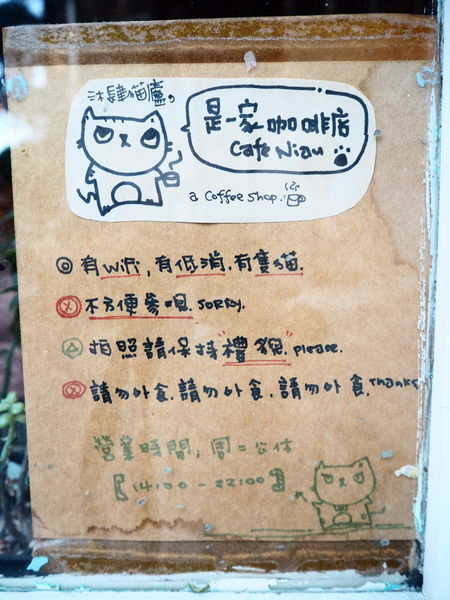 沐肆貓廬。
是一家咖啡店
Café Niau
a coffee shop.
◎ 有wifi,有低消.有隻貓.
ⓧ 不方便參唄. sorry.
拍照請保持"禮貌". please.
ⓧ 請勿外食.請勿外食.請勿外食.Thanks
營業時間; 周二公休
【14:00-22:00】